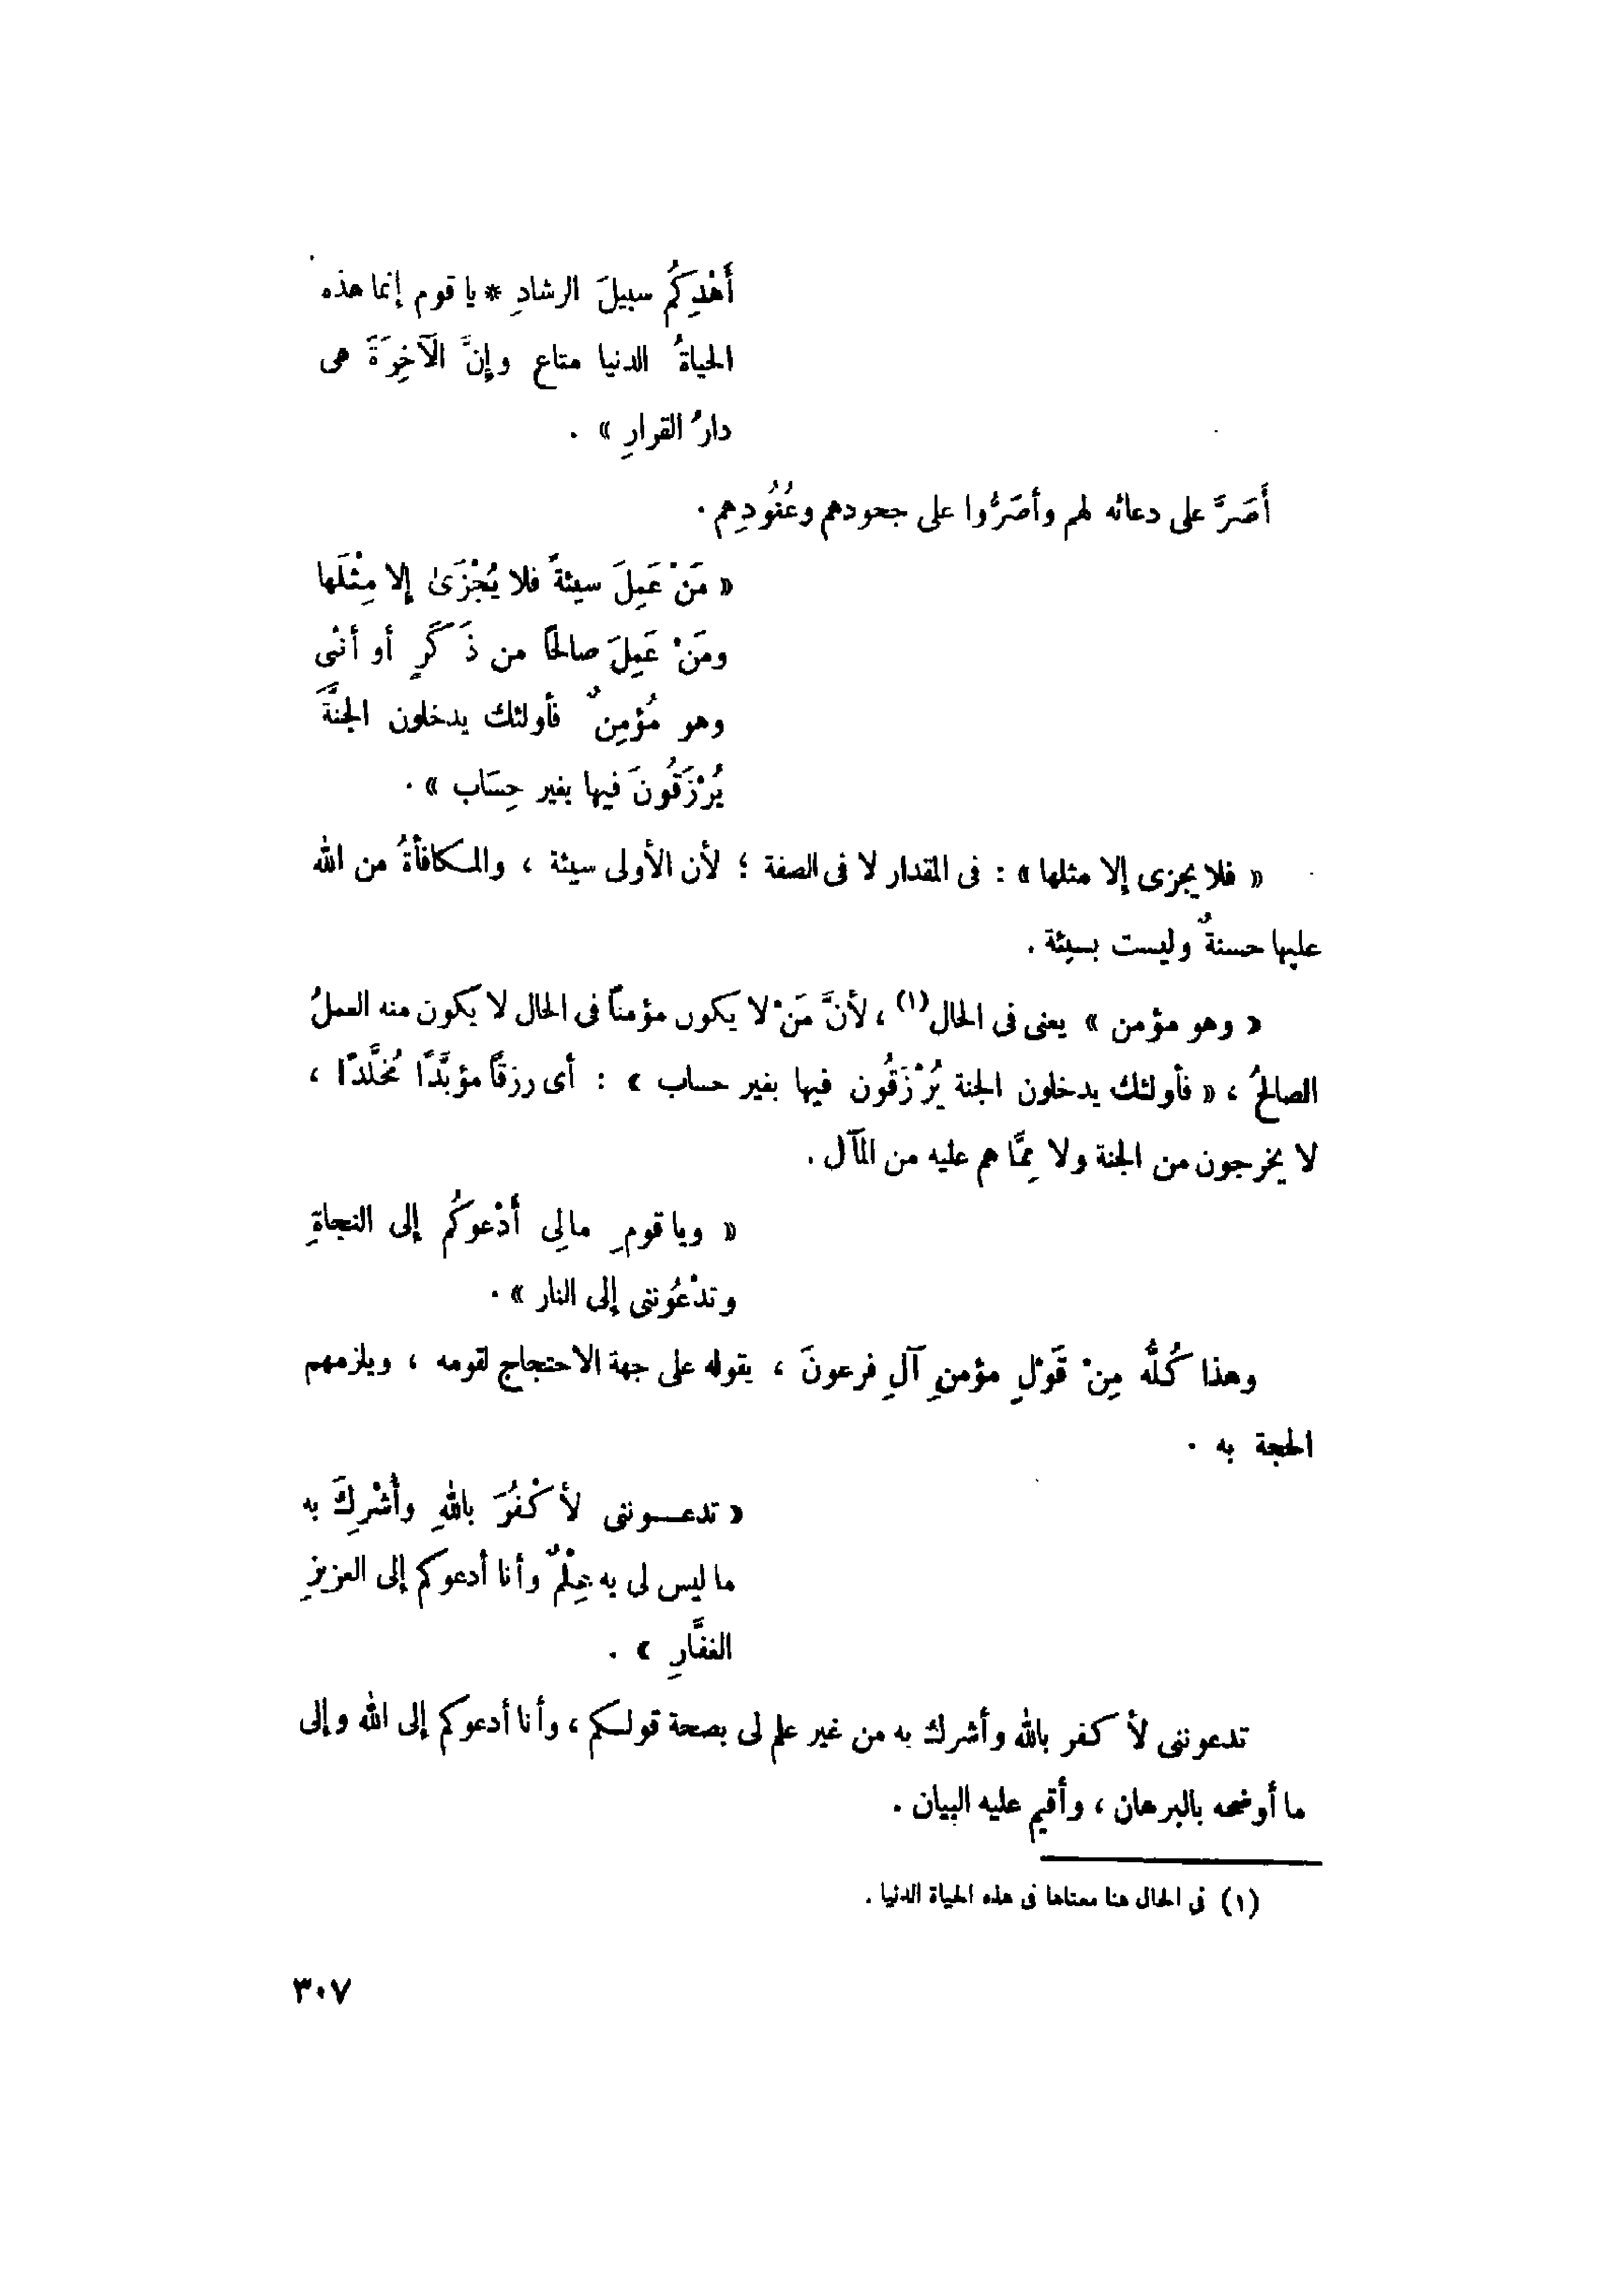 أَهْدِكُم سبيلَ الرشادِ * يا قوم إنما هذه
الحياةُ الدنيا متاع وإنَّ الْآخِرَةَ هى
دارُ القرارِ » .
أَصَرَّ على دعائه لهم وأصَرُّوا على جحودهم وعُنُودِهم .
« مَنْ عَمِلَ سيئةً فلا يُجْزَىٰ إلا مِثْلَها
ومَنْ عَمِلَ صالحًا من ذَكَرٍ أو أنثى
وهو مُؤمِنٌ فأولئك يدخلون الجنَّةَ
يُرْزَقُونَ فيها بغير حِسَاب » .
« فلا يجزى إلا مثلها » : فى المقدار لا فى الصفة ؛ لأن الأولى سيئة ، والمكافأةُ من الله
عليها حسنةٌ وليست بسيئة .
« وهو مؤمن » يعنى فى الحال (١) ، لأنَّ مَنْ لا يكون مؤمناً فى الحال لا يكون منه العملُ
الصالحُ ، « فأولئك يدخلون الجنة يُرْزَقُون فيها بغير حساب » : أى رزقًا مؤبَّدًا مُخلَّدًا ،
لا يخرجون من الجنة ولا مِمَّا هم عليه من المآل .
« ويا قومِ مالِى أدْعوكُم إلى النجاةِ
وتدْعُوننى إلى النار » .
وهذا كُلُّه مِنْ قَوْلِ مؤمنِ آلِ فرعونَ ، يقوله على جهة الاحتجاج لقومه ، ويلزمهم
الحجة به .
« تدعــوننى لأكْفُرَ باللهِ وأُشْرِكَ به
ما ليس لى به عِلْمٌ وأنا أدعوكم إلى العزيزِ
الغفَّارِ » .
تدعوننى لأكفر بالله وأشرك به من غير علم لى بصحة قولكم ، وأنا أدعوكم إلى الله وإلى
ما أوضحه بالبرهان ، وأقيم عليه البيان .
(١) فى الحال هنا معناها فى هذه الحياة الدنيا .
٣٠٧